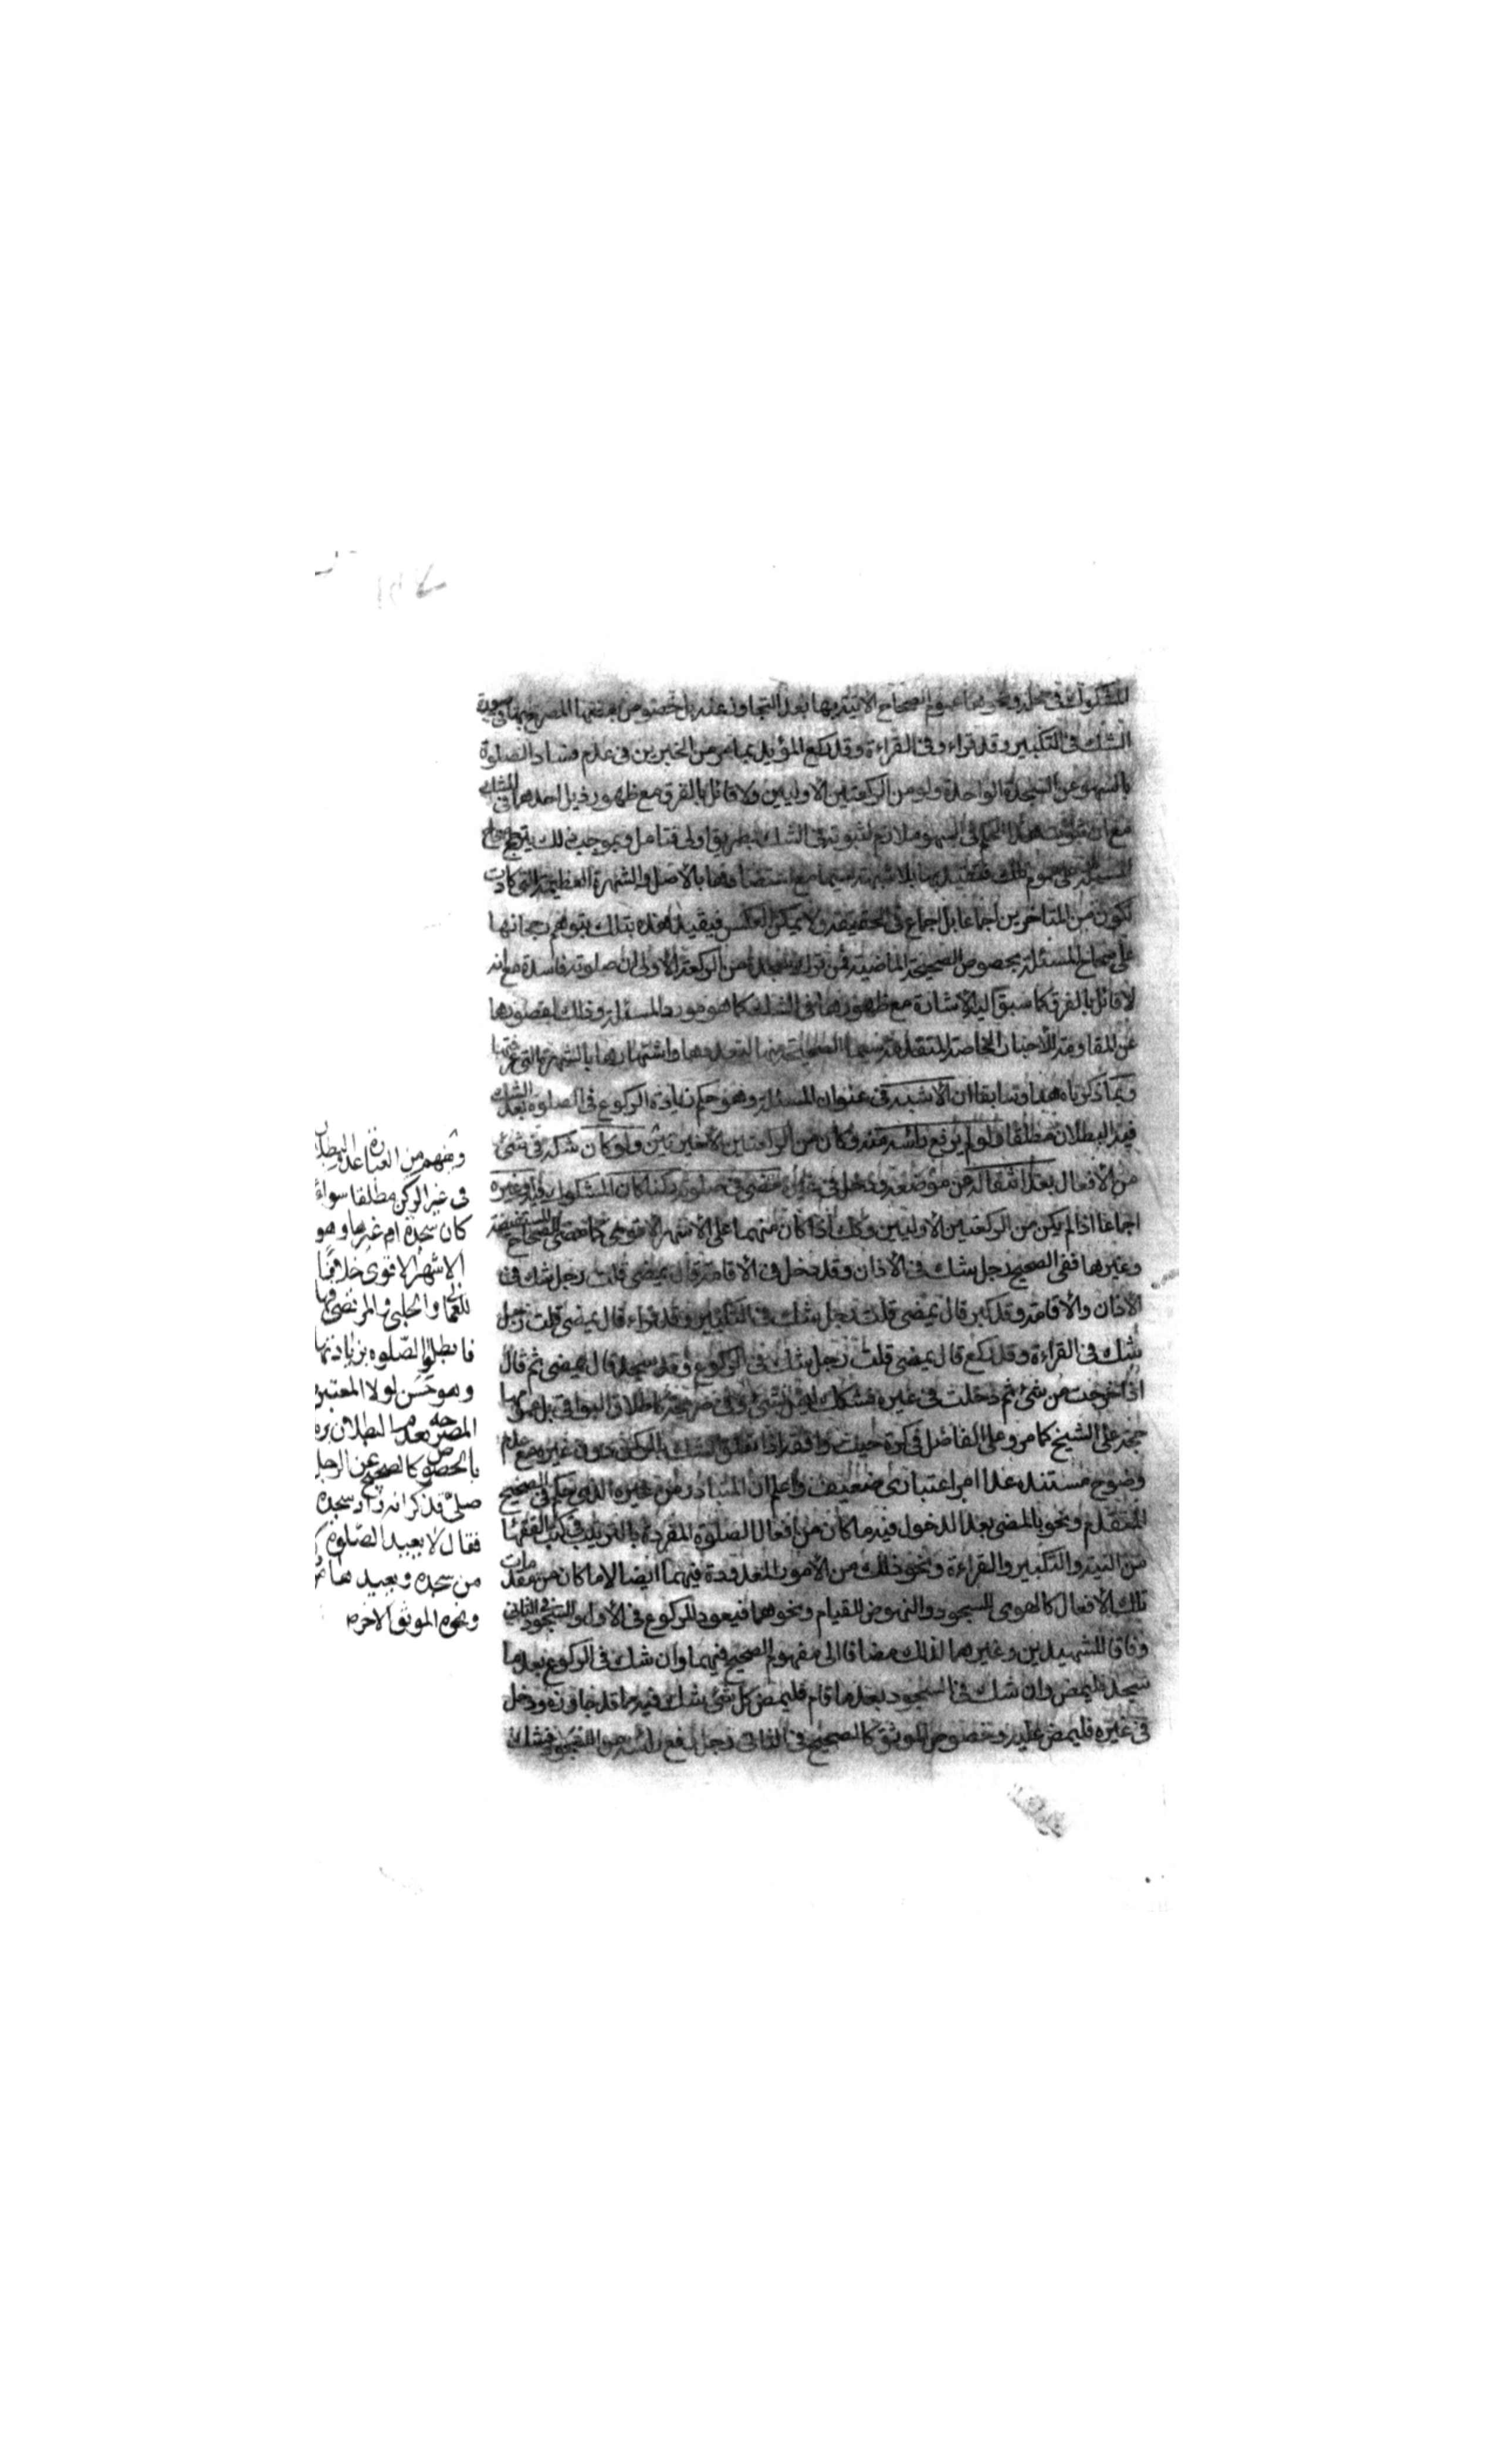 المشكوك في محله ونحوهما عموم الصحاح الآتية بها بعد التجاوز عنه بل خصوص بعضها المصرح بها في صورة
الشك في التكبير وقد قراء وفي القراءة وقد ركع المؤيد بما مر من الخبرين في عدم فساد الصلوة
بالسهو عن السجدة الواحدة ولو من الركعتين الاوليين ولا قائل بالفرق مع ظهور ذيل احدهما في الشك
مع ان ثبوت هذا الحكم في السهو ملازم لثبوته في الشك بطريق اولى فتامل وبموجب ذلك يترجح صحاح
المسئلة على عموم تلك فتقيد بها بلا شبهة سيما مع اعتضادها بالاصل والشهرة العظيمة التي كادت
تكون من المتاخرين اجماعا بل اجماع في الحقيقة ولا يمكن العكس فيقيد هذه بتلك بتوهم رجحانها
على صحاح المسئلة بخصوص الصحيحة الماضية فمن ترك سجدة من الركعة الاولى ان صلوته فاسدة مع انه
لا قائل بالفرق كما سبق اليه الاشارة مع ظهورها في الشك كما هو مورد المسئلة وذلك لقصورها
عن المقاومة للاخبار الخاصة المتقدمة سيما الصحيحة منها لتعددها واشتهارها بالشهرة التي عرفتها
ومما ذكرناه هنا وسابقا ان الاشبه في عنوان المسئلة وهو حكم زيادة الركوع في الصلوة بعد الشك
فيه البطلان مطلقا ولو لم يرفع رأسه منه وكان من الركعتين الاخيرتين ولو كان شكه في شئ
من الافعال بعد انتقاله عن موضعه ودخل في غيره مضى في صلوته ركنا كان المشكوك فيه وغيره
اجماعا اذا لم يكن من الركعتين الاوليين وكك اذا كان منهما على الاشهر الاقوى كما مضى للصحاح المستفيضة
وغيرها ففي الصحيح رجل شك في الاذان وقد دخل في الاقامة قال يمضى قلت رجل شك في
الاذان والاقامة وقد كبر قال يمضى قلت رجل شك في التكبير وقد قراء قال يمضى قلت رجل
شك في القراءة وقد ركع قال يمضى قلت رجل شك في الركوع وقد سجد قال يمضى ثم قال
اذا خرجت من شئ ثم دخلت في غيره فشكك ليس بشئ وفي صريحه كاطلاق البواقي بل عمومها
حجة على الشيخ كما مر وعلى الفاضل في كرة حيث وافقه اذا تعلق الشك بالركن دون غيره مع عدم
وضوح مستنده عدا امر اعتباري ضعيف واعلم ان المتبادر من غيره الذي حكم في الصحيح
المتقدم ونحوه بالمضى بعد الدخول فيه ما كان من افعال الصلوة المفردة بالتبويب في كتب الفقهاء
من النية والتكبير والقراءة ونحو ذلك من الامور المعدودة فيهما ايضا الا ما كان من مقدمات
تلك الافعال كالهوى للسجود والنهوض للقيام ونحوهما فيعود للركوع في الاول والسجود في الثاني
وفاقا للشهيدين وغيرهما لذلك مضافا الى مفهوم الصحيح فيهما وان شك في الركوع بعد ما
سجد فليمض وان شك في السجود بعد ما قام فليمض كل شئ شك فيه مما قد جاوزه ودخل
في غيره فليمض عليه وخصوص الموثق كالصحيح في الثاني رجل رفع رأسه من السجود فشك
ومنهم من العبارة عدم البطلان
في غير الركن مطلقا سواء
كان سجدة ام غيرها وهو
الاشهر الاقوى خلافا
للعماني والحلبي والمرتضى فيها
فابطلوا الصلوه بزيادتها
وهو حسن لولا المعتبرة
المصرحه بعدم البطلان
بالخصوص كالصحيح عن الرجل
صلى فذكر انه زاد سجده
فقال لا يعيد الصلوة
من سجده ويعيدها من
ونحوه الموثق الاخر